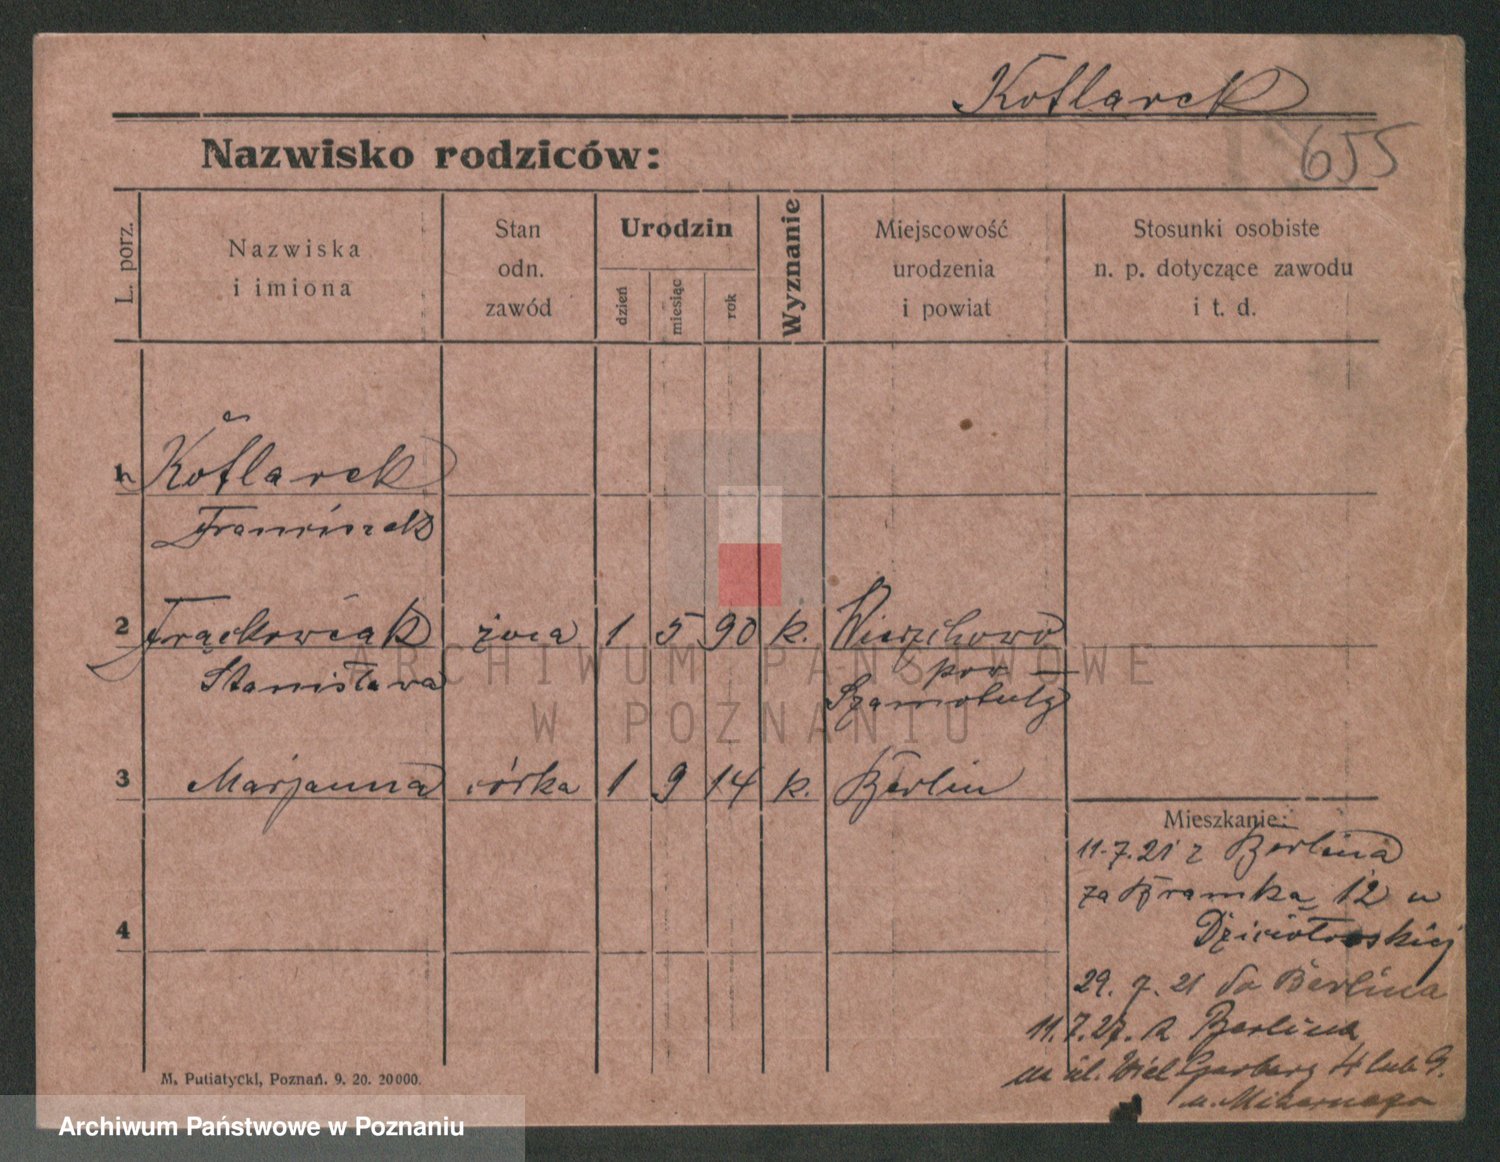 Kotlarek
655
Nazwisko rodziców:
L. porz.
Nazwiska
i imiona
Stan
odn.
zawód
Urodzin
dzień
miesiąc
rok
Wyznanie
Miejscowość
urodzenia
i powiat
Stosunki osobiste
n. p. dotyczące zawodu
i t. d.
1 Kotlarek
Franciszek
2 Frąckowiak żona 1 5 90 k.
Stanisława pow
Szamotuły
3 Marjanna córka 1 9 14 k. Berlin
4
Mieszkanie:
11.7.21 z Berlina
za Bramką 12 u
29. 7. 21 do Berlina
11.7.27. z Berlina
na ul. Wiel Garbary 4 lub 9.
u
M. Putiatycki, Poznań. 9. 20. 20000.
ARCHIWUM PAŃSTWOWE
W POZNANIU
Archiwum Państwowe w Poznaniu